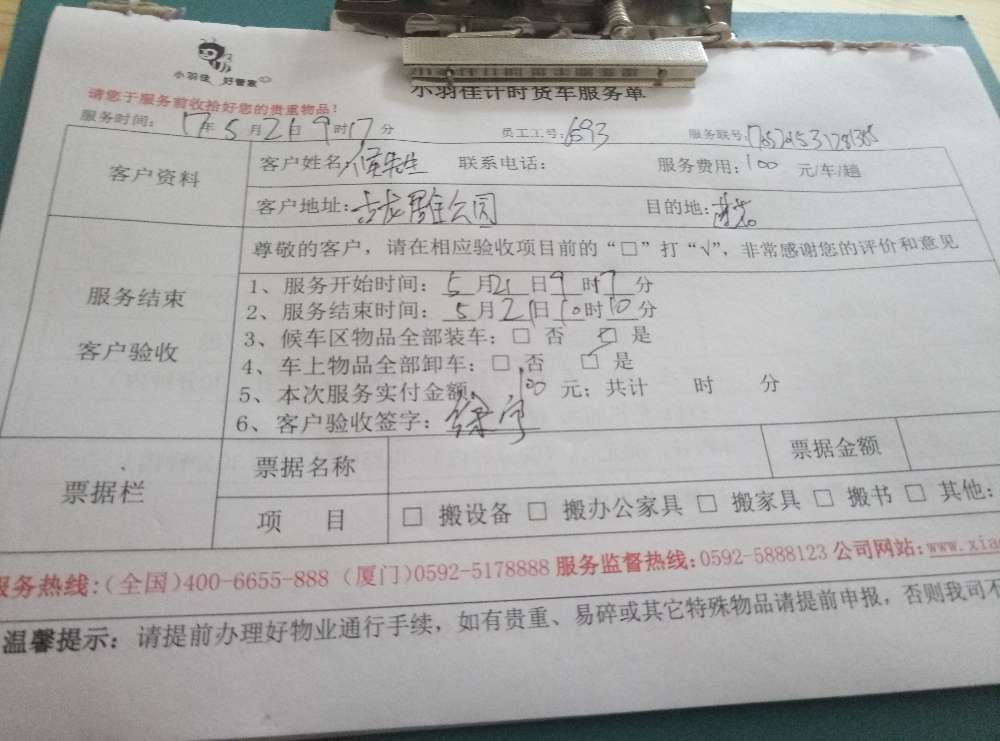 小羽佳 好管家
小羽佳计时货车服务单
请您于服务前收拾好您的贵重物品!
服务时间: 17年5月21日9时17分 员工工号:693 服务联号:
客户资料
客户姓名: 侯先生 联系电话: 服务费用: 100 元/车/趟
客户地址: 公园 目的地:
服务结束
客户验收
尊敬的客户，请在相应验收项目前的“□”打“√”，非常感谢您的评价和意见
1、服务开始时间: 5月21日9时17分
2、服务结束时间: 5月21日10时10分
3、候车区物品全部装车: □ 否 □ 是
4、车上物品全部卸车: □ 否 □ 是
5、本次服务实付金额: 100 元; 共计 时 分
6、客户验收签字:
票据栏
票据名称 票据金额
项 目 □ 搬设备 □ 搬办公家具 □ 搬家具 □ 搬书 □ 其他:
服务热线:(全国)400-6655-888 (厦门)0592-5178888 服务监督热线:0592-5888123 公司网站:www.xia
温馨提示: 请提前办理好物业通行手续，如有贵重、易碎或其它特殊物品请提前申报，否则我司不